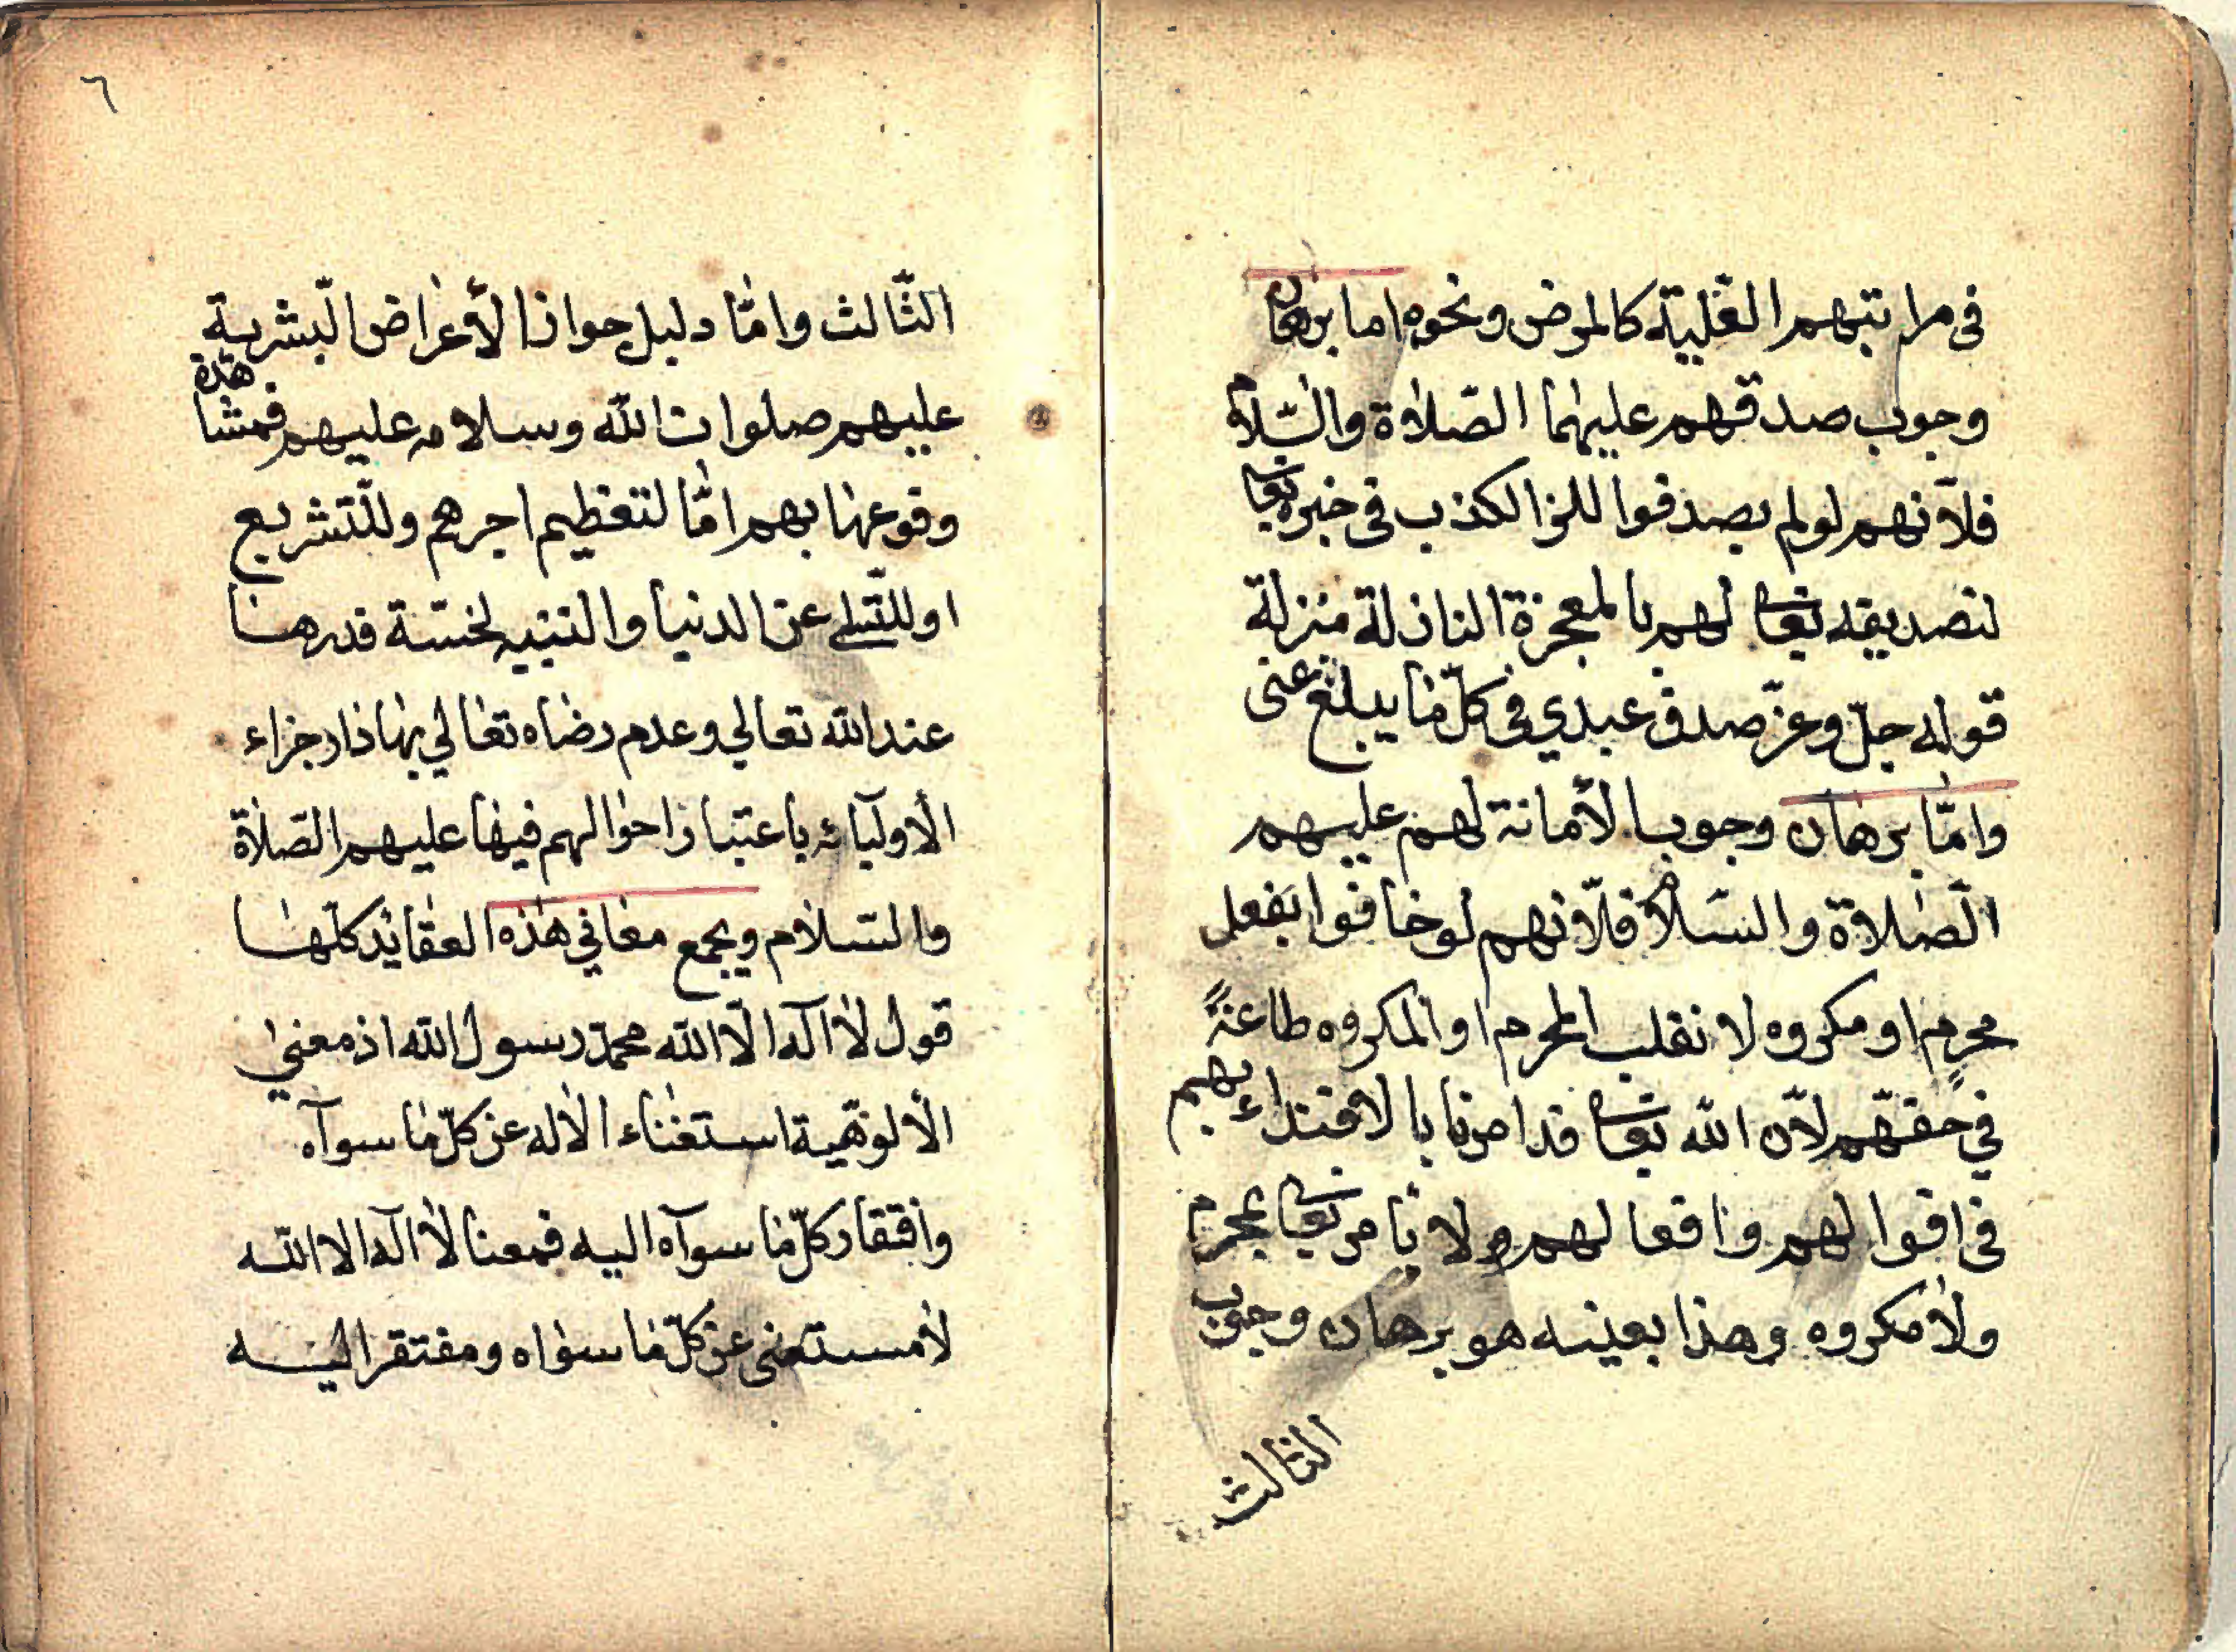 في مراتبهم العلية كالمرض ونحوه اما برهان
وجوب صدقهم عليهما الصّلاة والسّلام
فلأنهم لو لم يصدقوا للزا الكذب في خبره تعا
لتصديقه تعا لهم بالمعجزة النازلة منزلة
قوله جلّ وعزّ صدق عبدي في كلّ ما يبلغ عنى
وامّا برهان وجوب الأمانة لهم عليهم
الصّلاة والسّلام فلأنهم لو خافوا بفعل
محرم او مكروه لا نقلب المحرم او المكروه طاعةً
في حقهم لأن الله تعا قد امرنا با لاقتداء بهم
في اقوا لهم وافعا لهم ولا يامر تعا بمحرم
ولا مكروه وهذا بعينه هو برهان وجوب
الثالث
٦
الثّالث وامّا دليل جواز الأعراض البشرية
عليهم صلوات الله وسلامه عليهم فمشا هدة
وقوعها بهم امّا لتعظيم اجرهم وللتّشريع
او للتّسلى عن الدنيا والتنبيه لخسّة قدرها
عند الله تعالي وعدم رضاه تعالي بها دار جزاء
الأوليائه باعتبار احوالهم فيها عليهم الصّلاة
والسّلام ويجمع معاني هذه العقايد كلّها
قول لا اله الّا الله محمّد رسول الله اذ معني
الألوهية استغناء الاله عن كلّ ما سوآه
وافتقار كلّ ما سوآه اليه فمعنا لا اله الا الله
لا مستغنى عن كلّ ما سواه ومفتقر اليه